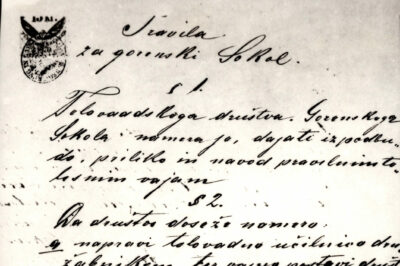 Pravila
za gorenski Sokol.
§ 1.
Telovadskega društva "Gorenskega
Sokola" namera je, dajati izpodbu-
do, priliko in navod pravilnim te-
lesnim vajam
§ 2.
Da društvo doseže namero,
a, napravi telovadno učilnico